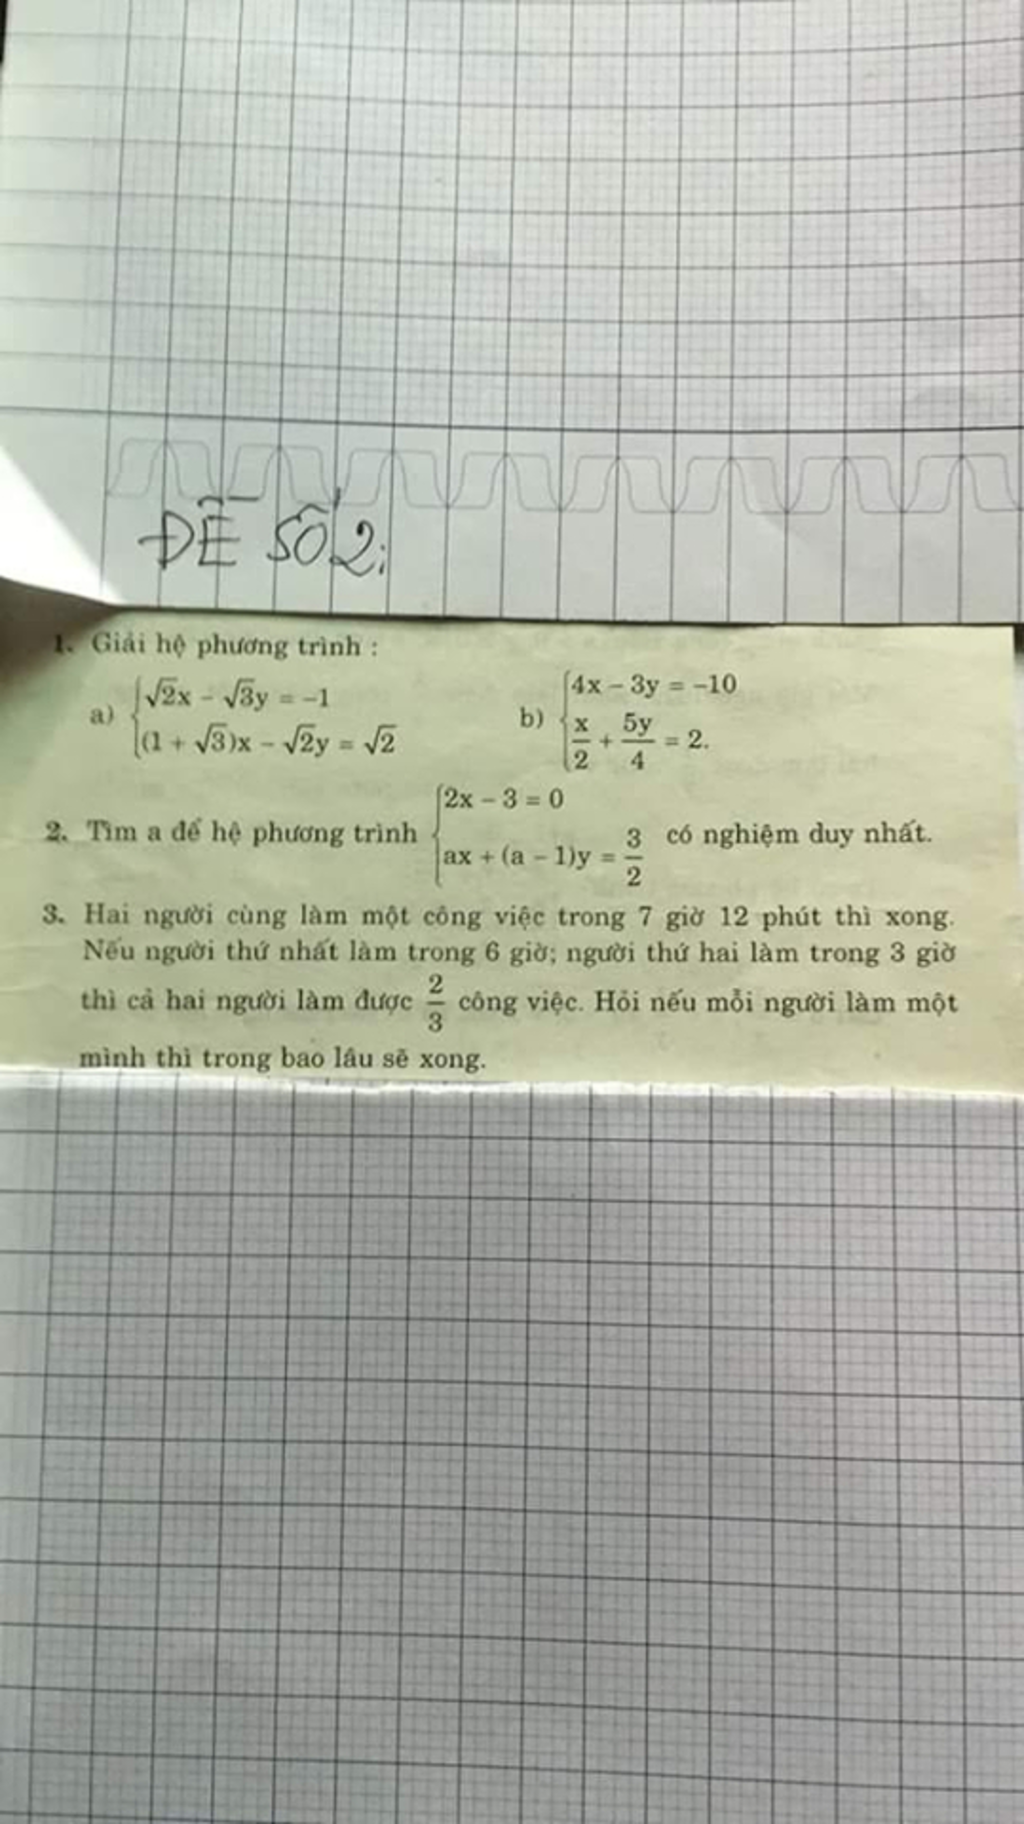 ĐỀ SỐ 2:
1. Giải hệ phương trình :
a) {√2x – √3y = –1
(1 + √3)x – √2y = √2
b) {4x – 3y = –10
x/2 + 5y/4 = 2.
2. Tìm a để hệ phương trình {2x – 3 = 0
ax + (a – 1)y = 3/2 có nghiệm duy nhất.
3. Hai người cùng làm một công việc trong 7 giờ 12 phút thì xong.
Nếu người thứ nhất làm trong 6 giờ; người thứ hai làm trong 3 giờ
thì cả hai người làm được 2/3 công việc. Hỏi nếu mỗi người làm một
mình thì trong bao lâu sẽ xong.